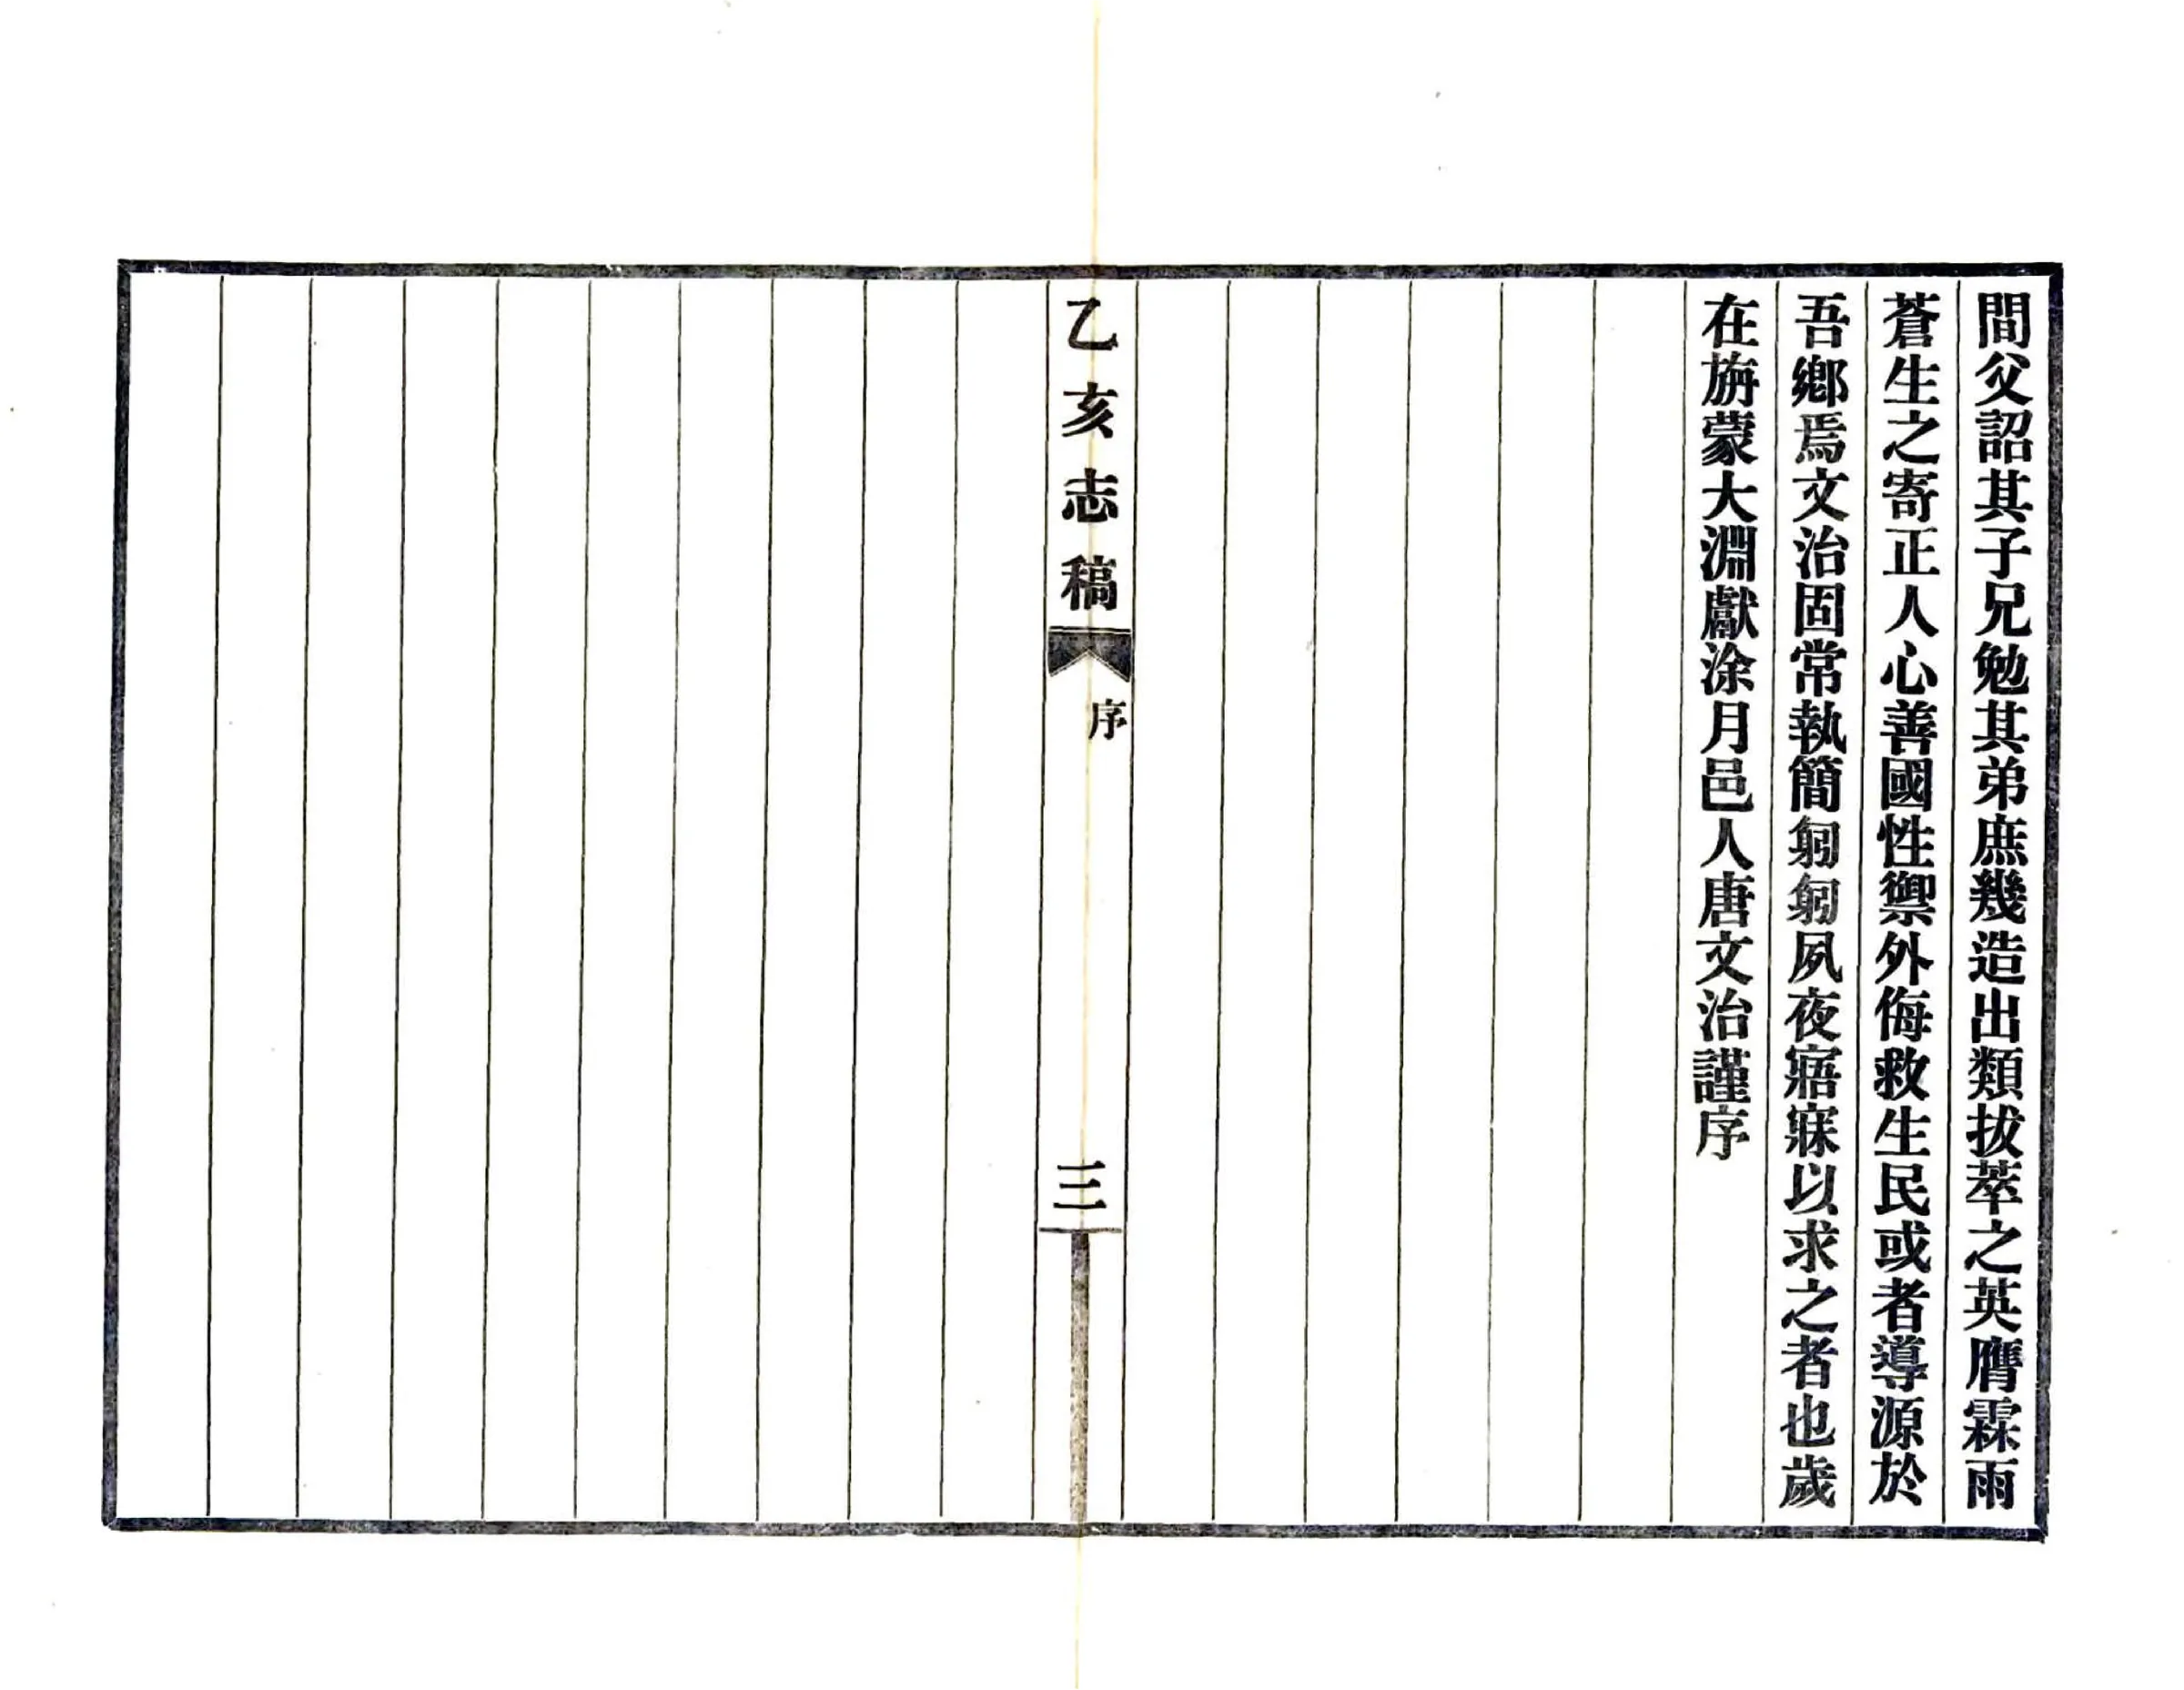 間父詔其子兄勉其弟庶幾造出類拔萃之英膺霖雨
蒼生之寄正人心善國性禦外侮救生民或者導源於
吾鄉焉文治固常執簡匑匑夙夜寤寐以求之者也歲
在旃蒙大淵獻涂月邑人唐文治謹序
乙亥志稿
序
三